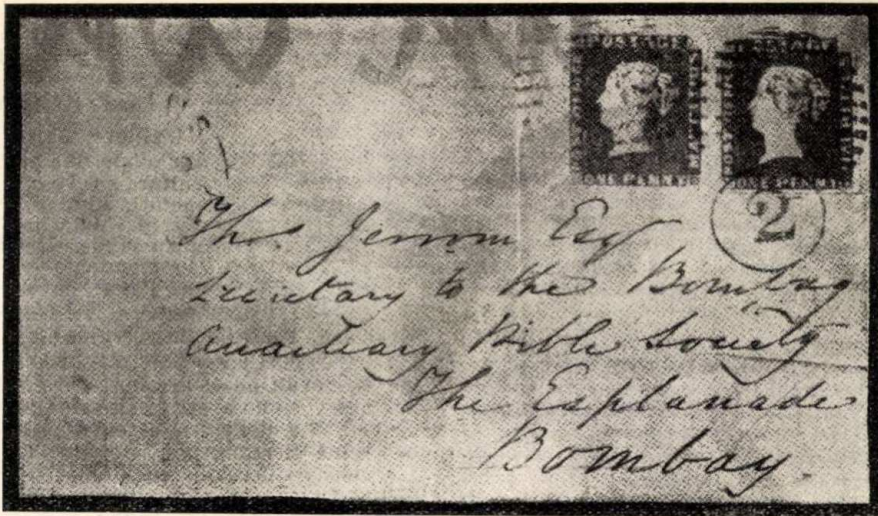 POSTAGE POSTAGE
ONE PENNY ONE PENNY
2
Thos. Jerrom Esq
Secretary to the Bombay
Auxiliary Bible Society
The Esplanade
Bombay.